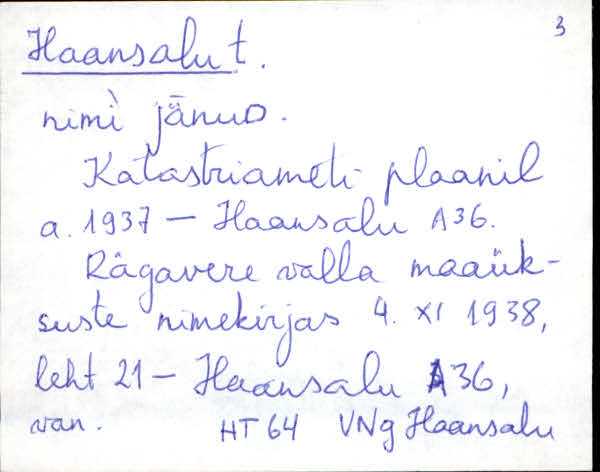 3
Haansalu t.
nimi jänud.
Katastriameti plaanil
a. 1937 – Haansalu A36.
Rägavere valla maaük-
suste nimekirjas 4. XI 1938,
leht 21 – Haansalu A36,
van. HT 64 VNg Haansalu